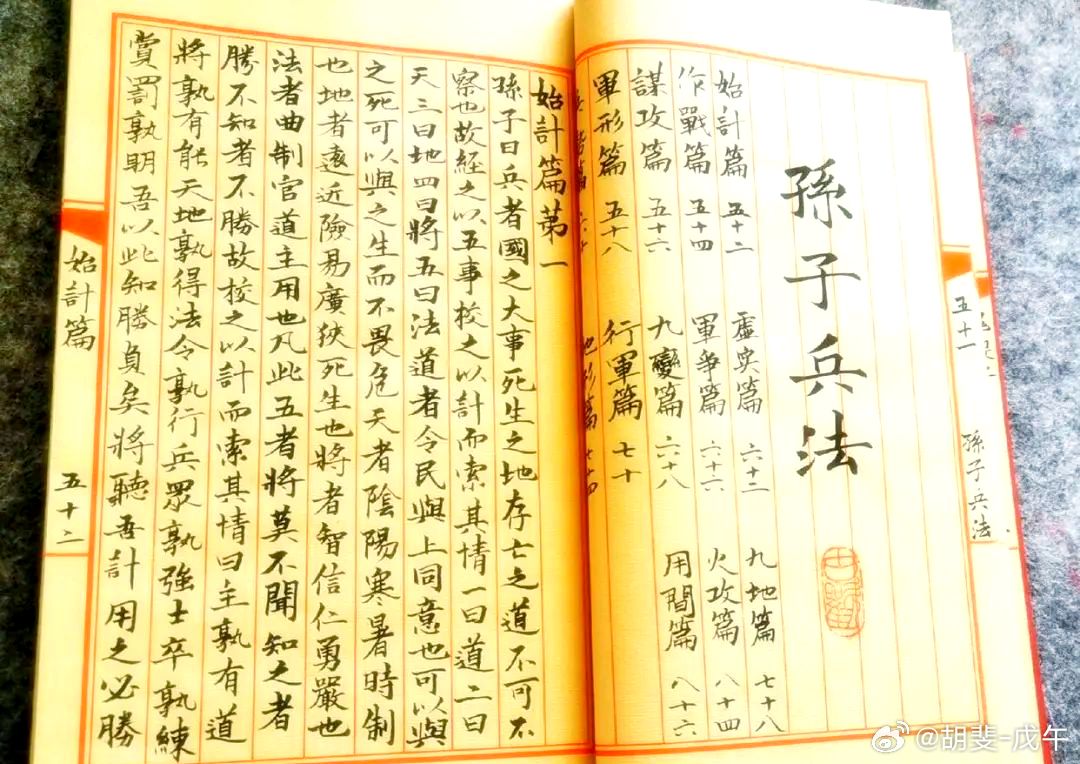 五十一 孫子兵法
孫子兵法
始計篇 五十二 虛实篇 六十二 九地篇 七十八
作戰篇 五十四 軍爭篇 六十六 火攻篇 八十四
謀攻篇 五十六 九變篇 六十八 用間篇 八十六
軍形篇 五十八 行軍篇 七十
兵勢篇 六十 地形篇 七十四
始計篇第一
孫子曰兵者國之大事死生之地存亡之道不可不
察也故經之以五事校之以計而索其情一曰道二曰
天三曰地四曰將五曰法道者令民與上同意也可以與
之死可以與之生而不畏危天者陰陽寒暑時制
也地者遠近險易廣狹死生也將者智信仁勇嚴也
法者曲制官道主用也凡此五者將莫不聞知之者
勝不知者不勝故校之以計而索其情曰主孰有道
將孰有能天地孰得法令孰行兵眾孰強士卒孰練
賞罰孰明吾以此知勝負矣將聽吾計用之必勝
始計篇 五十二
@胡斐-戊午